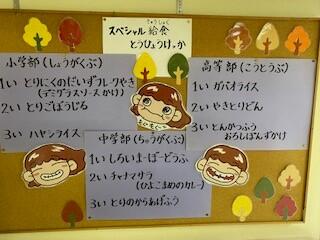 きゅうしょく
スペシャル給食
とうひょうけっか
小学部(しょうがくぶ)
1い とりにくのだいずフレークやき
(デミグラスソースかけ)
2い とりごぼうじる
3い ハヤシライス
高等部(こうとうぶ)
1い ガパオライス
2い やきとりどん
3い とんかつふう
おろしぽんずかけ
中学部(ちゅうがくぶ)
1い しろいまーぼーどうふ
2い チャナマサラ
(ひよこまめのカレー)
3い とりのからあげふう